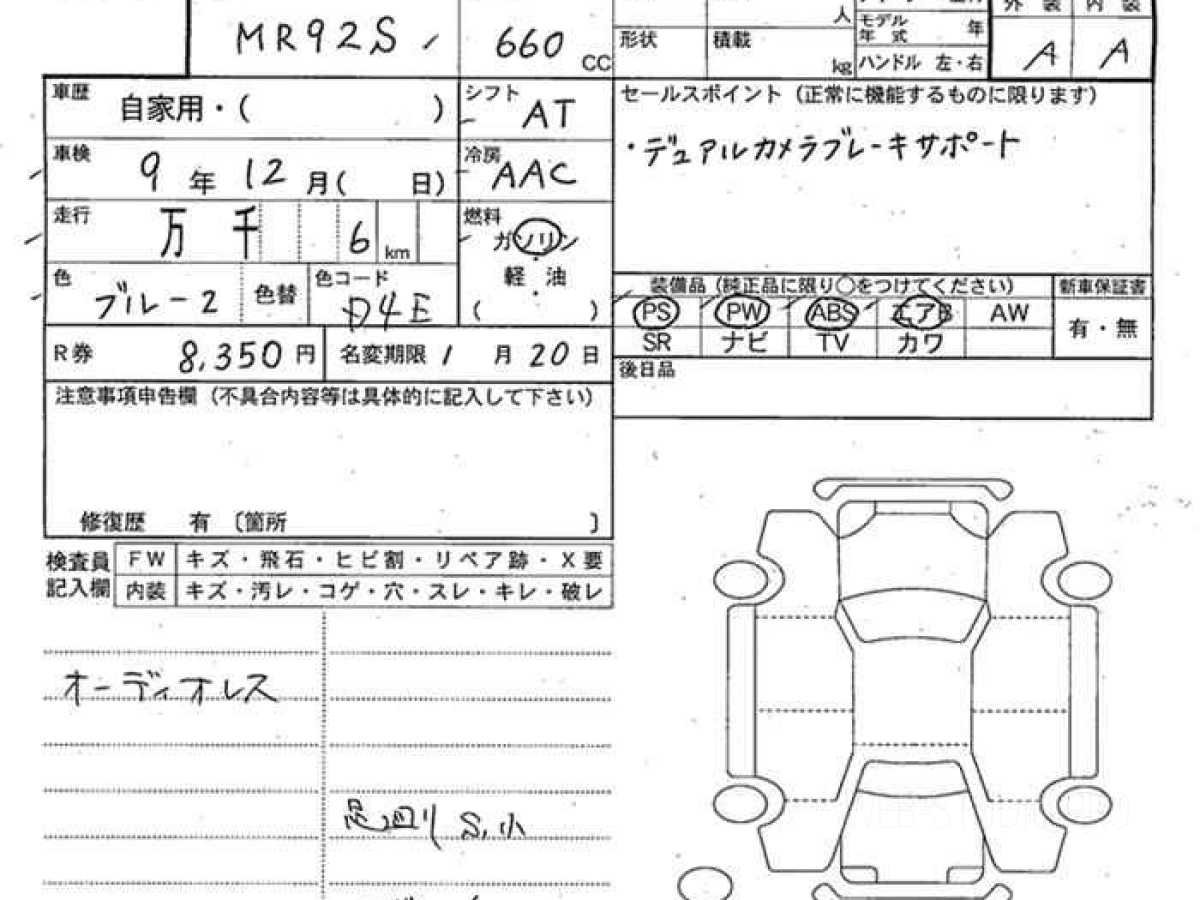 MR92S
660 CC
人
形状 積載 kg
モデル年式 年
ハンドル 左・右
外装 内装
A A
車歴 自家用・( )
シフト AT
車検 9年 12月( 日)
冷房 AAC
走行 万 千 6 km
燃料 ガソリン
軽・油
( )
色 ブルー2 色替
色コード D4E
R券 8,350円
名変期限 1月20日
セールスポイント (正常に機能するものに限ります)
・デュアルカメラブレーキサポート
装備品 (純正品に限り○をつけてください)
PS PW ABS エアB AW
SR ナビ TV カワ
新車保証書
有・無
後日品
注意事項申告欄 (不具合内容等は具体的に記入して下さい)
修復歴 有 〔箇所 〕
検査員記入欄
FW キズ・飛石・ヒビ割・リペア跡・X要
内装 キズ・汚レ・コゲ・穴・スレ・キレ・破レ
オーディオレス
足廻り S,小